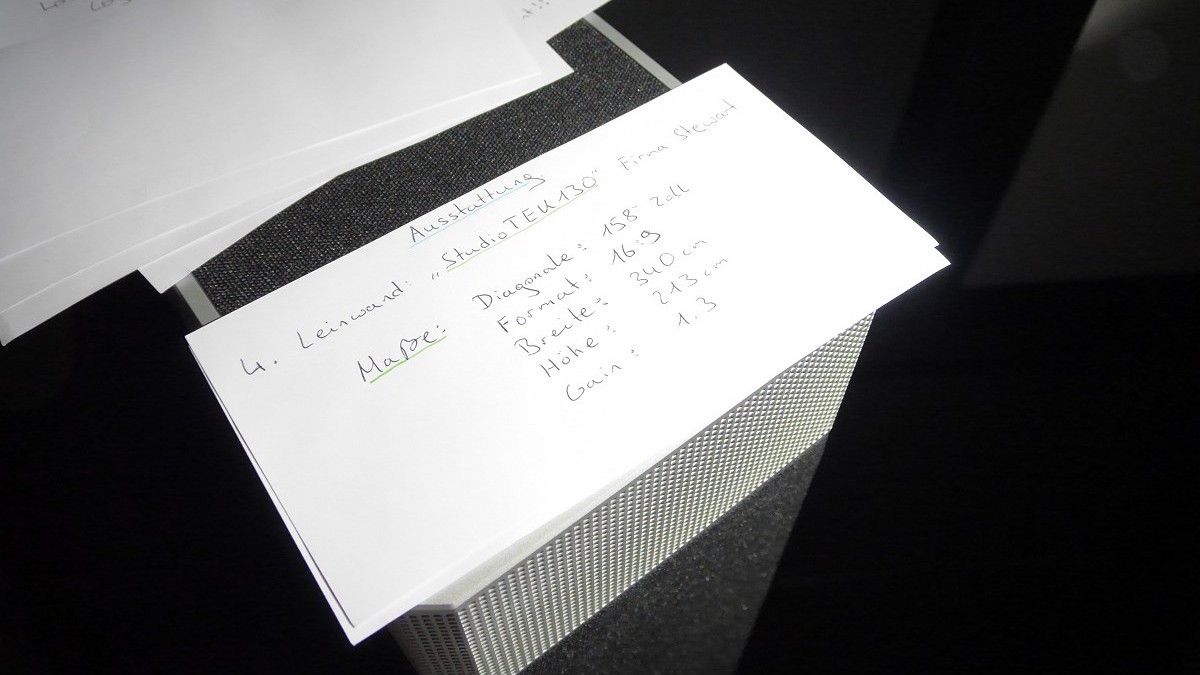 Ausstattung
4. Leinwand: „StudioTEK130" Firma Stewart
Maße: Diagonale: 158" Zoll
Format: 16:9
Breite: 340 cm
Höhe: 213 cm
Gain: 1.3